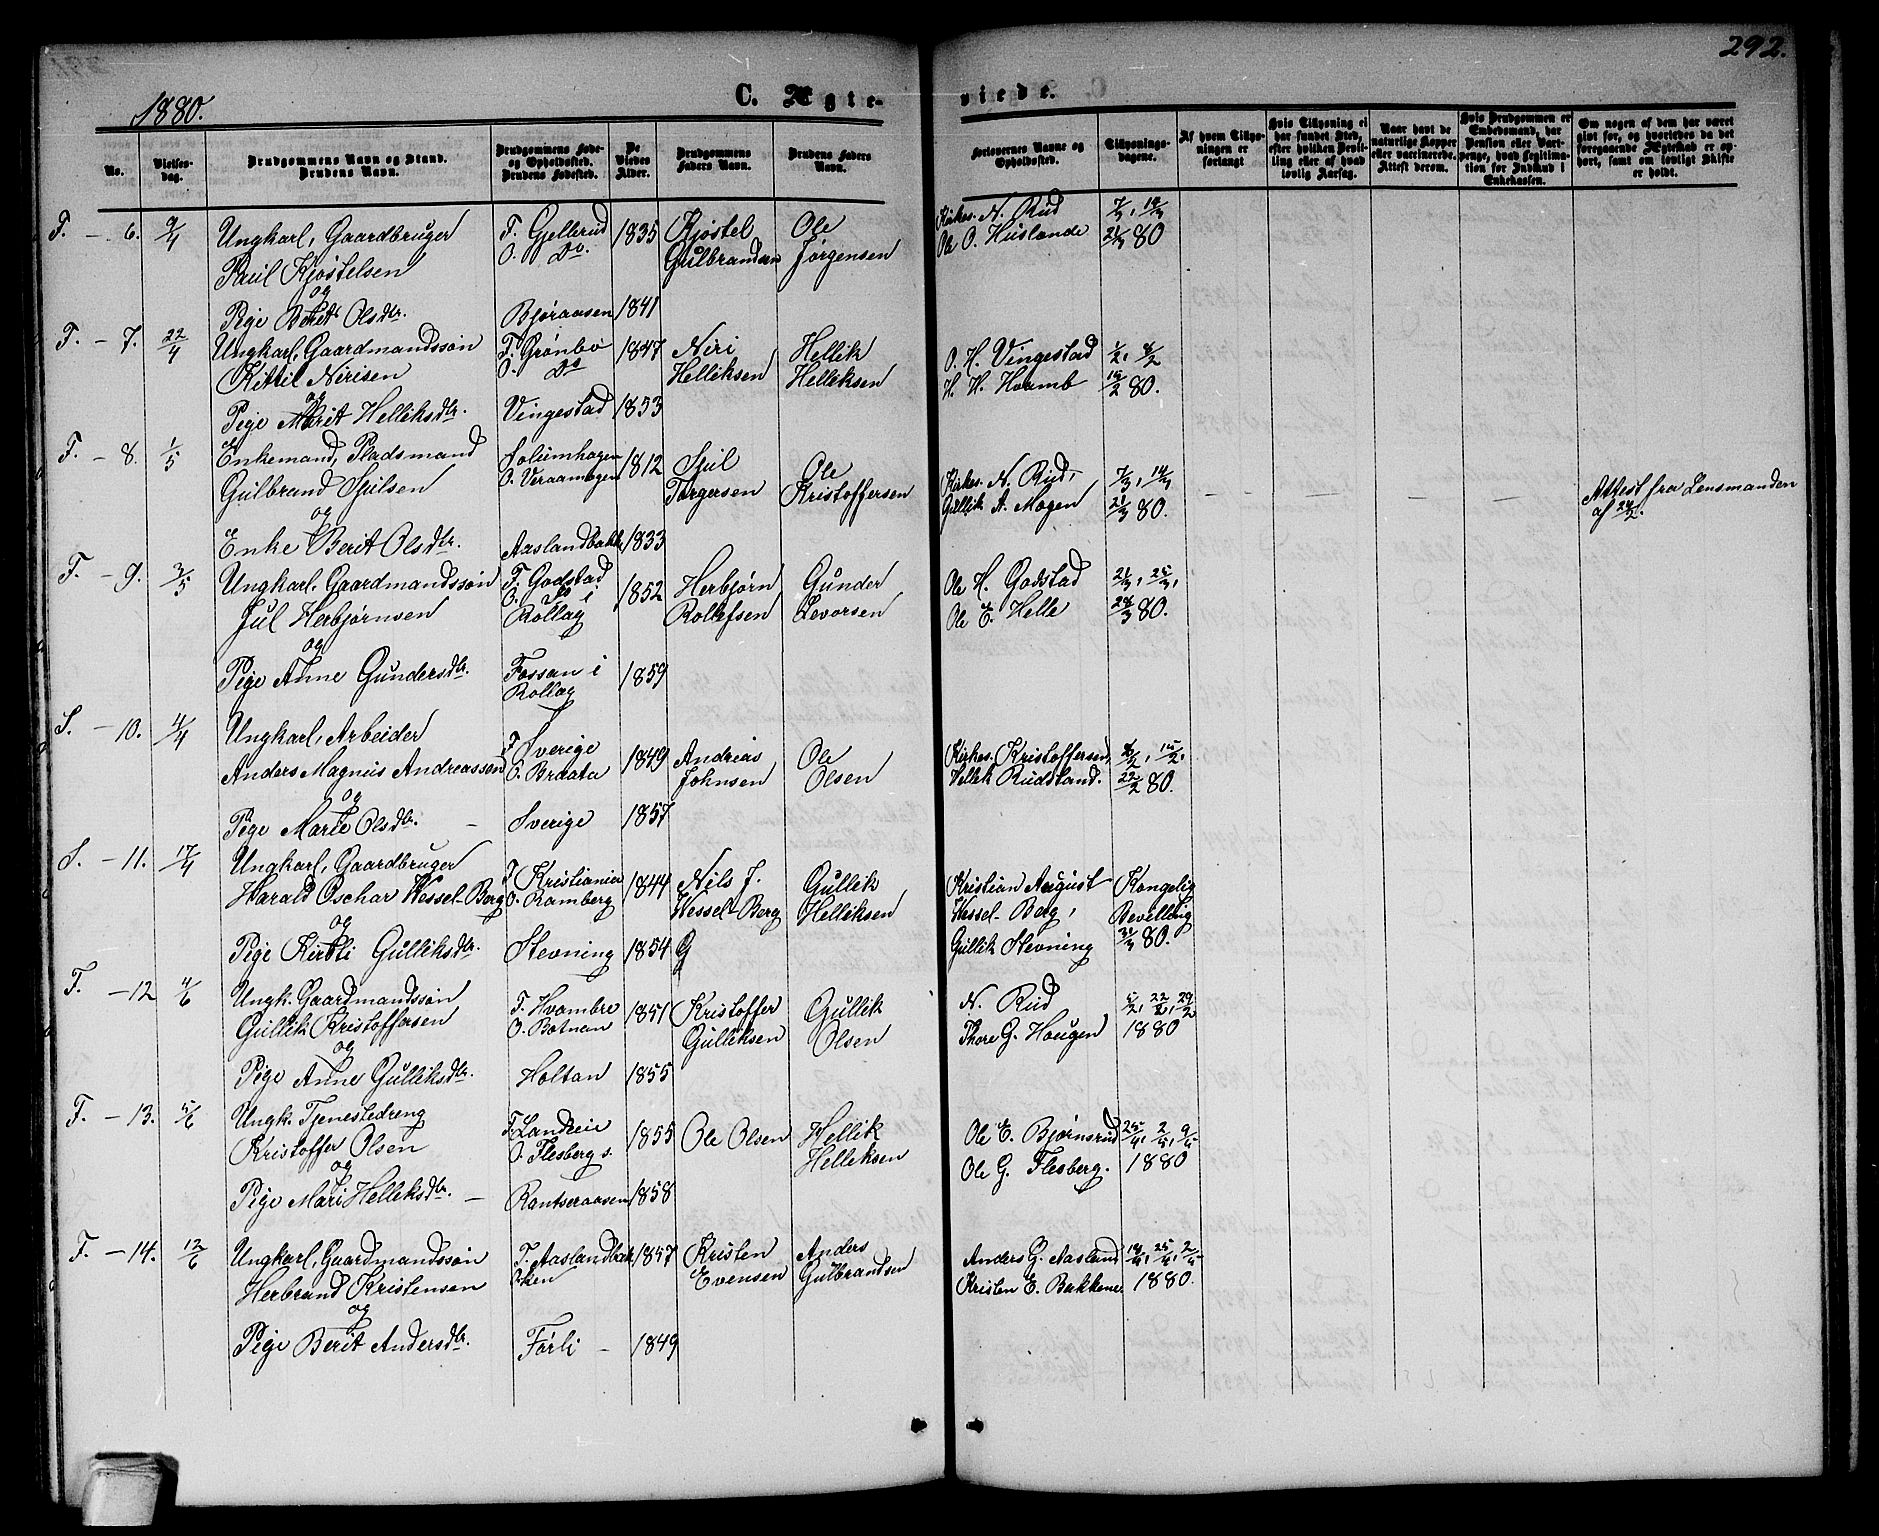 292.
1880.
C. Ægte-
viede.
No.
Vielses-
dag.
Brudgommens Navn og Stand.
Brudens Navn.
Brudgommens Føde-
og Opholdssted.
Brudens Fødested.
De
Viedes
Alder.
Brudgommens
Faders Navn.
Brudens Faders
Navn.
Forlovernes Navne og
Opholdssted.
Tillysnings-
dagene.
Af hvem Tillys-
ningen er
forlangt
Hvis Tillysning ei
har fundet Sted,
efter hvilken Bevil-
ling eller af hvad
lovlig Aarsag.
Naar havt de
naturlige Kopper
eller vaccinerede.
Attest derom.
Hvis Brudgommen er
Embedsmand, har
Pension eller Vart-
penge, hvad Legitima-
tion for Indskud i
Enkekassen.
Om nogen af dem har været
gift før, og hvorledes da det
foregaaende Ægteskab er op-
hørt, samt om lovligt Skifte
er holdt.
F. - 6. 9/4 Ungkarl, Gaardbruger F. Gjellerud 1835 Kjøstel Ole Kirkes. N. Rud 7/3, 14/3
Paul Kjøstelsen O. Do. Gulbrandsen Jørgensen Ole O. Huslende 21/3 80
og
Pige Berit Olsdtr. Bjøraasen 1841
F. - 7. 22/4 Ungkarl, Gaardmandssøn F. Grønbo 1847 Niri Hellik O. H. Vingestad 1/2, 8/2
Kittil Nirisen O. Do Helliksen Helliksen H. H. Hvamb 15/2 80.
og
Pige Marit Helliksdtr. Vingestad 1853
F. - 8. 1/5 Enkemand, Pladsmand Solumhagen 1812 Sjul Ole Kirkes. N. Rud, 7/3, 14/3
Gulbrand Sjulsen O. Veraamogen Torgersen Kristoffersen Gullik A. Mogen 21/3 80. Attest fra Lensmanden
af 24/2.
og
Enke Berit Olsdtr. Aaslandbakk. 1833
F. - 9. 3/5 Ungkarl, Gaardmandssøn F. Godstad 1852 Herbjørn Gunder Ole H. Godstad 21/3, 25/3,
Jul Herbjørnsen O. Do i Rollefsen Levorsen Ole E. Helle 28/3 80.
Rollag
og
Pige Anne Gundersdtr. Fossan i 1859
Rollag
S. - 10. 4/4 Ungkarl, Arbeider F. Sverige 1849 Andreas Ole Kirkes. Kristoffersen, 8/2, 15/2,
Anders Magnus Andreassen O. Braata Johnsen Olsen Hellik Rudsland. 22/2 80.
og
Pige Marie Olsdtr. - Sverige 1857
S. - 11. 17/4 Ungkarl, Gaardbruger F. Kristiania 1844 Nils J. Gullik Kristian August Kongelig
Harald Oschar Wessel-Berg O. Ramberg Wessel-Berg Helliksen Wessel-Berg, Bevilling
og
Pige Kirsti Gulliksdtr. Stevning 1854 G Gullik Stevning 31/3 80.
F. - 12 4/6 Ungk. Gaardmandssøn F. Hvambre 1851 Kristoffer Gullik N. Rud 22/2, 29/2
Gullik Kristoffersen O. Botnan Gulliksen Olsen Thore G. Haugen 1880
og
Pige Anne Gulliksdtr. Holtan 1855
F. - 13. 5/6 Ungk. Tjenestedreng F. Landseie 1855 Ole Olsen Hellik Ole E. Bjørnsrud 25/4, 2/5, 9/5
Kristoffer Olsen O. Flesberg s. Helliksen Ole G. Flesberg. 1880
og
Pige Mari Helliksdtr. - Rantseraasen 1858
F. - 14. 12/6 Ungkarl, Gaardmandssøn F. Aaslandbak- 1857 Kristen Anders Anders G. Aasland 18/4, 25/4, 2/5
Herbrand Kristensen O. ken Evensen Gulbrandsen Kristen E. Bakkene 1880.
og
Pige Berit Andersdtr. Førli - 1849